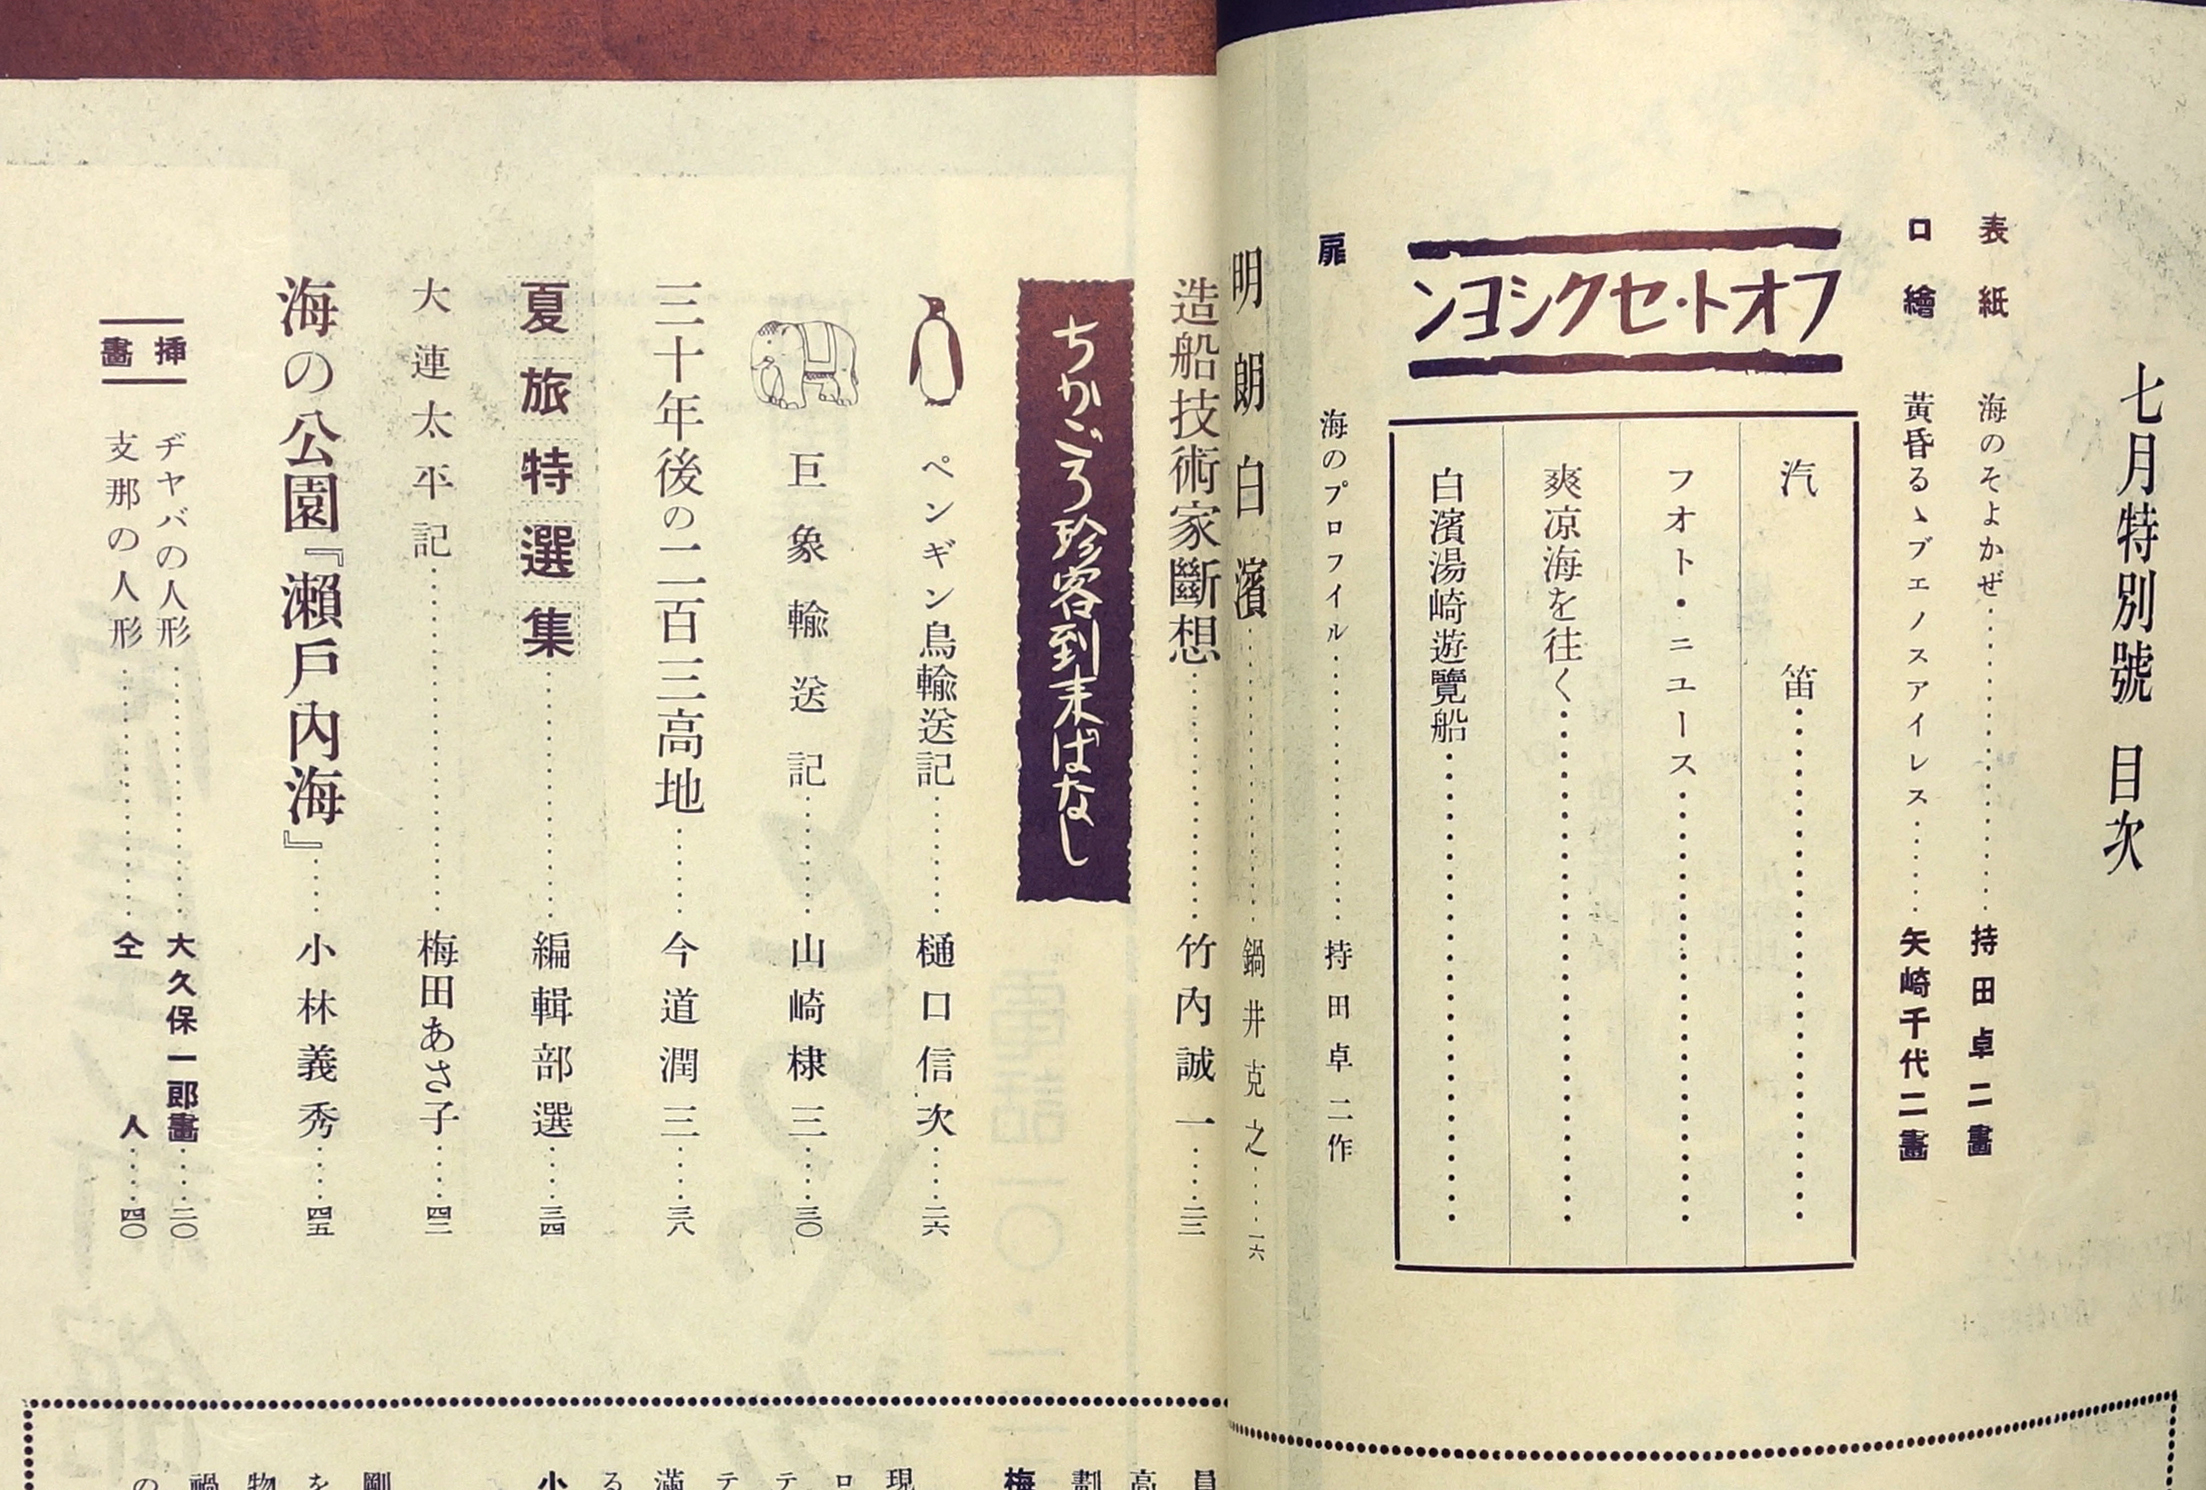 七月特別號 目次
表紙 海のそよかぜ……持田卓二畫
口繪 黃昏るゝブエノスアイレス……矢崎千代二畫
フオト・セクシヨン
汽笛……
フオト・ニユース……
爽凉海を往く……
白濱湯崎遊覽船……
扉 海のプロフイル……持田卓二作
明朗白濱……鍋井克之……一六
造船技術家斷想……竹内誠一……二二
ちかごろ珍客到来ばなし
ペンギン鳥輸送記……樋口信次……二六
巨象輸送記……山崎棣三……三〇
三十年後の二百三高地……今道潤三……三八
夏旅特選集……編輯部選……三四
大連太平記……梅田あさ子……四二
海の公園『瀨戶內海』……小林義秀……四五
挿畫
ヂヤバの人形……大久保一郎畫……二〇
支那の人形……仝人……四〇
高
劃
梅
現
ロ
テ
テ
滿
る
小
剛
を
物
禍
の